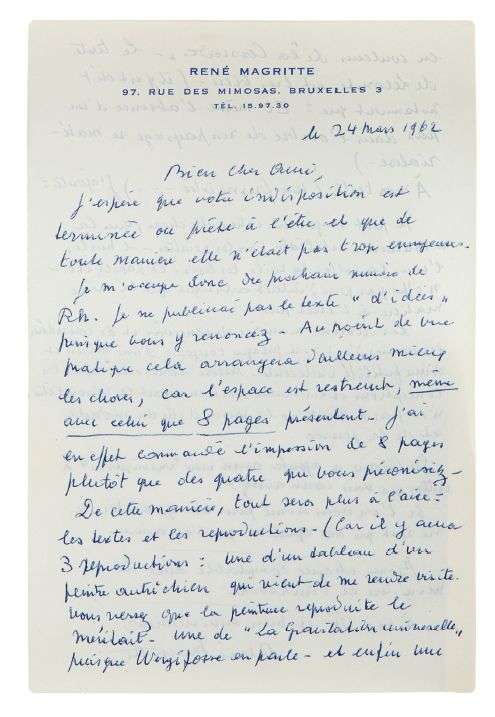 RENÉ MAGRITTE
97, RUE DES MIMOSAS, BRUXELLES 3
TÉL. 15.97.30
le 24 Mars 1962
Bien cher Ami,
J'espère que votre indisposition est
terminée ou prête à l'être et que de
toute manière elle n'était pas trop ennuyeuse.
Je m'occupe donc du prochain numéro de
Rh. Je ne publierai pas le texte "d'idées"
puisque vous y renoncez - Au point de vue
pratique cela arrangera d'ailleurs mieux
les choses, car l'espace est restreint, même
avec celui que 8 pages présentent - J'ai
en effet commandé l'impression de 8 pages
plutôt que des quatre que vous préconisiez -
De cette manière, tout sera plus à l'aise :
les textes et les reproductions - (Car il y aura
3 reproductions : une d'un tableau d'un
peintre autrichien qui vient de me rendre visite.
Vous verrez que la peinture reproduite le
méritait - une de "La Gravitation universelle",
puisque en parle - et enfin une